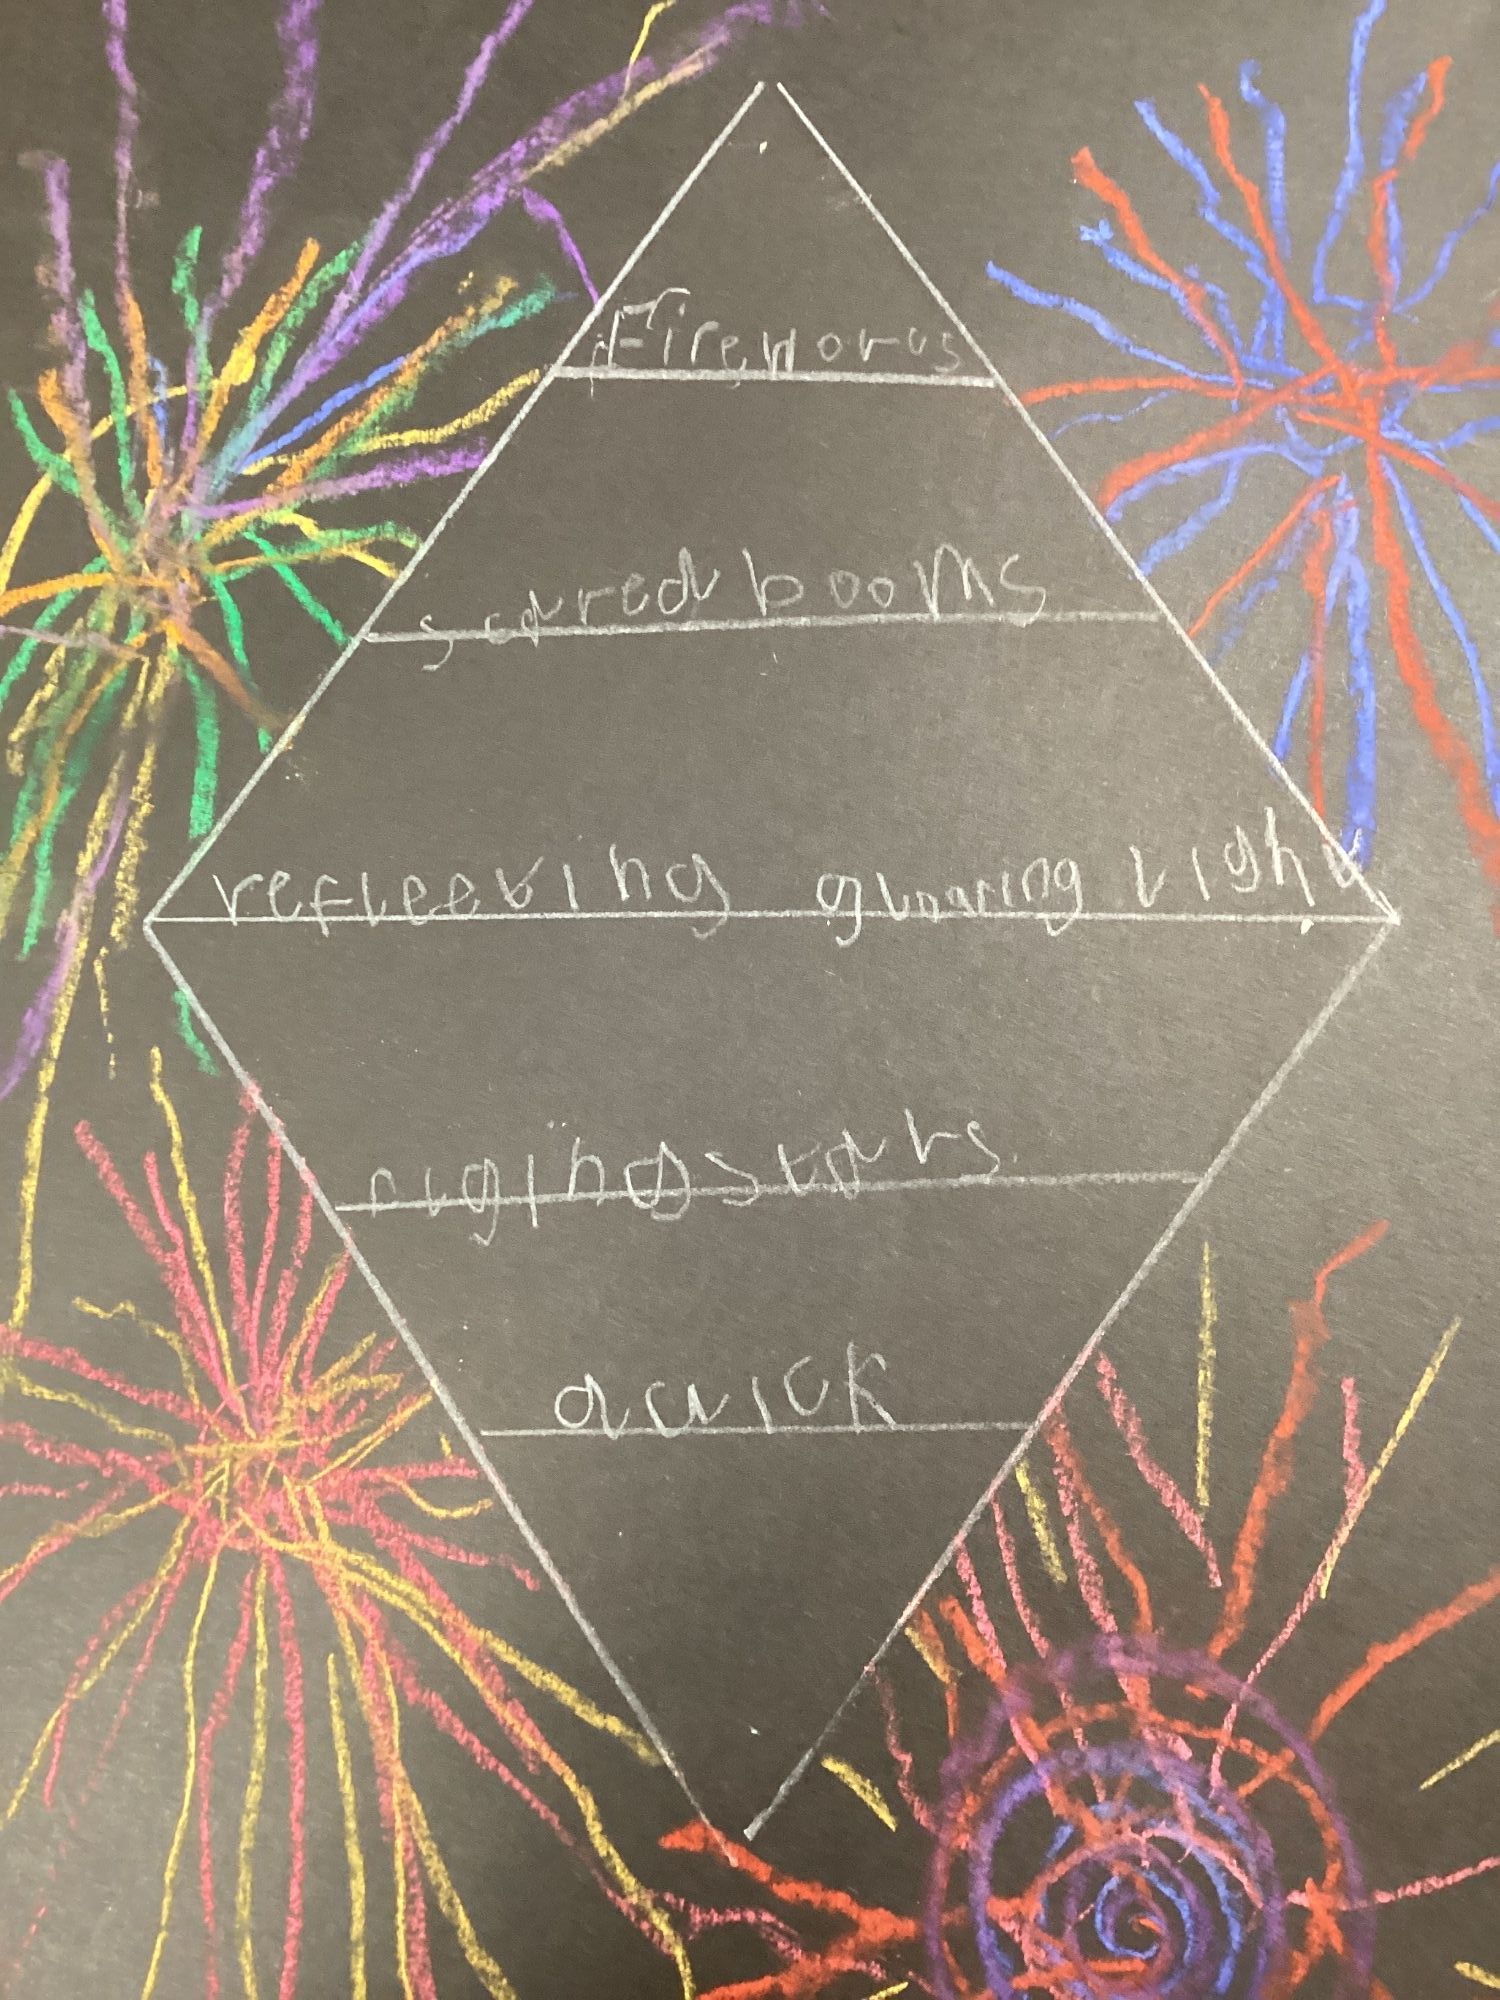 Fireworks
scared booms
reflecting glowing light
rigingstars
quick